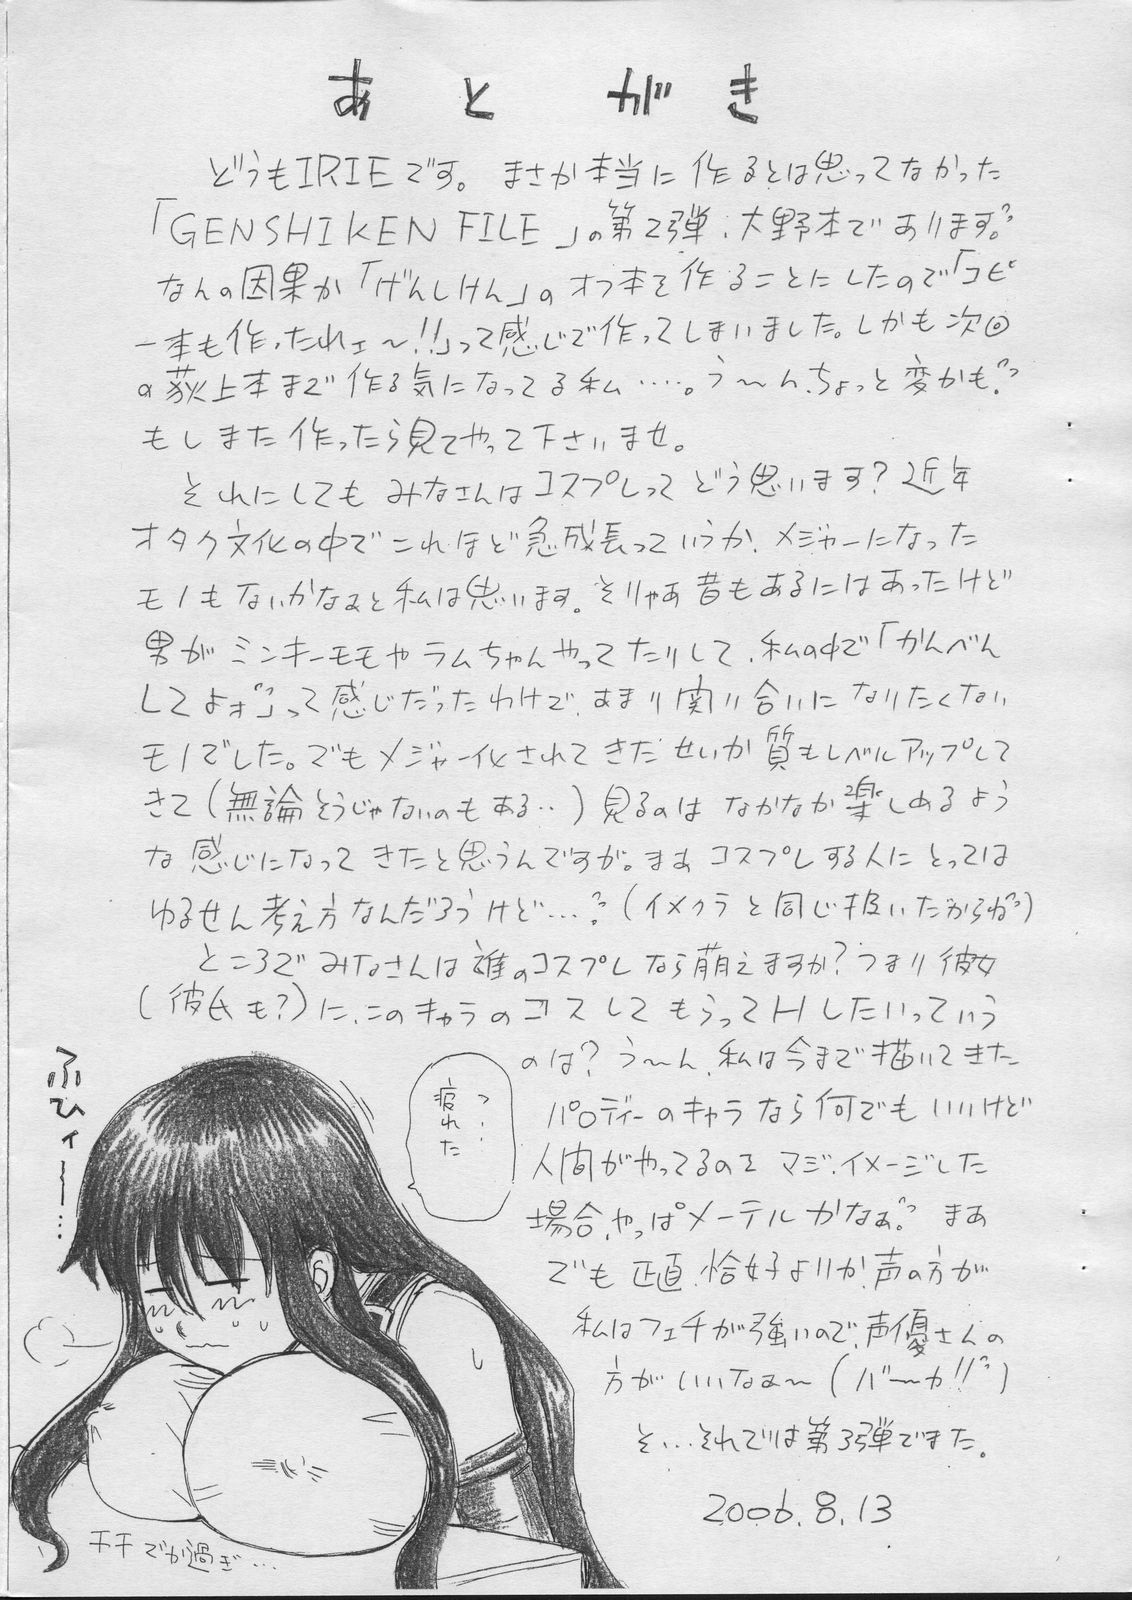 あとがき
どうもIRIEです。まさか本当に作るとは思ってなかった
「GENSHIKEN FILE」の第2弾、大野本であります。
なんの因果か「げんしけん」のオフ本を作ることにしたので「コピ
ー本も作ったれェ〜!!」って感じで作ってしまいました。しかも次回
の荻上本まで作る気になってる私……。う〜ん、ちょっと変かも?
もしまた作ったら見てやって下さいませ。
それにしてもみなさんはコスプレってどう思います?近年
オタク文化の中でこれほど急成長っていうか、メジャーになった
モノもないかなぁと私は思います。そりゃあ昔もあるにはあったけど
男がミンキーモモやラムちゃんやってたりして、私の中で「かんべん
してよォ」って感じだったわけで、あまり関り合いになりたくない
モノでした。でもメジャー化されてきたせいか質もレベルアップして
きて(無論そうじゃないのもある‥)見るのはなかなか楽しめるよう
な感じになってきたと思うんですが。まあコスプレする人にとっては
ゆるせん考え方なんだろうけど…。?(イメクラと同じ扱いだからね)
ところでみなさんは誰のコスプレなら萌えますか?つまり彼女
(彼氏も?)に、このキャラのコスしてもらってHしたいっていう
のは?う〜ん、私は今まで描いてきた
パロディーのキャラなら何でもいいけど
人間がやってるのをマジ、イメージした
場合、やっぱメーテルかなぁ。まあ
でも正直、恰好よりか声の方が
私はフェチが強いので、声優さんの
方がいいなぁ〜(バーカ!!)
そ…それでは第3弾でまた。
2006.8.13
ふひィ〜…
つ…
疲れた
チチでか過ぎ…